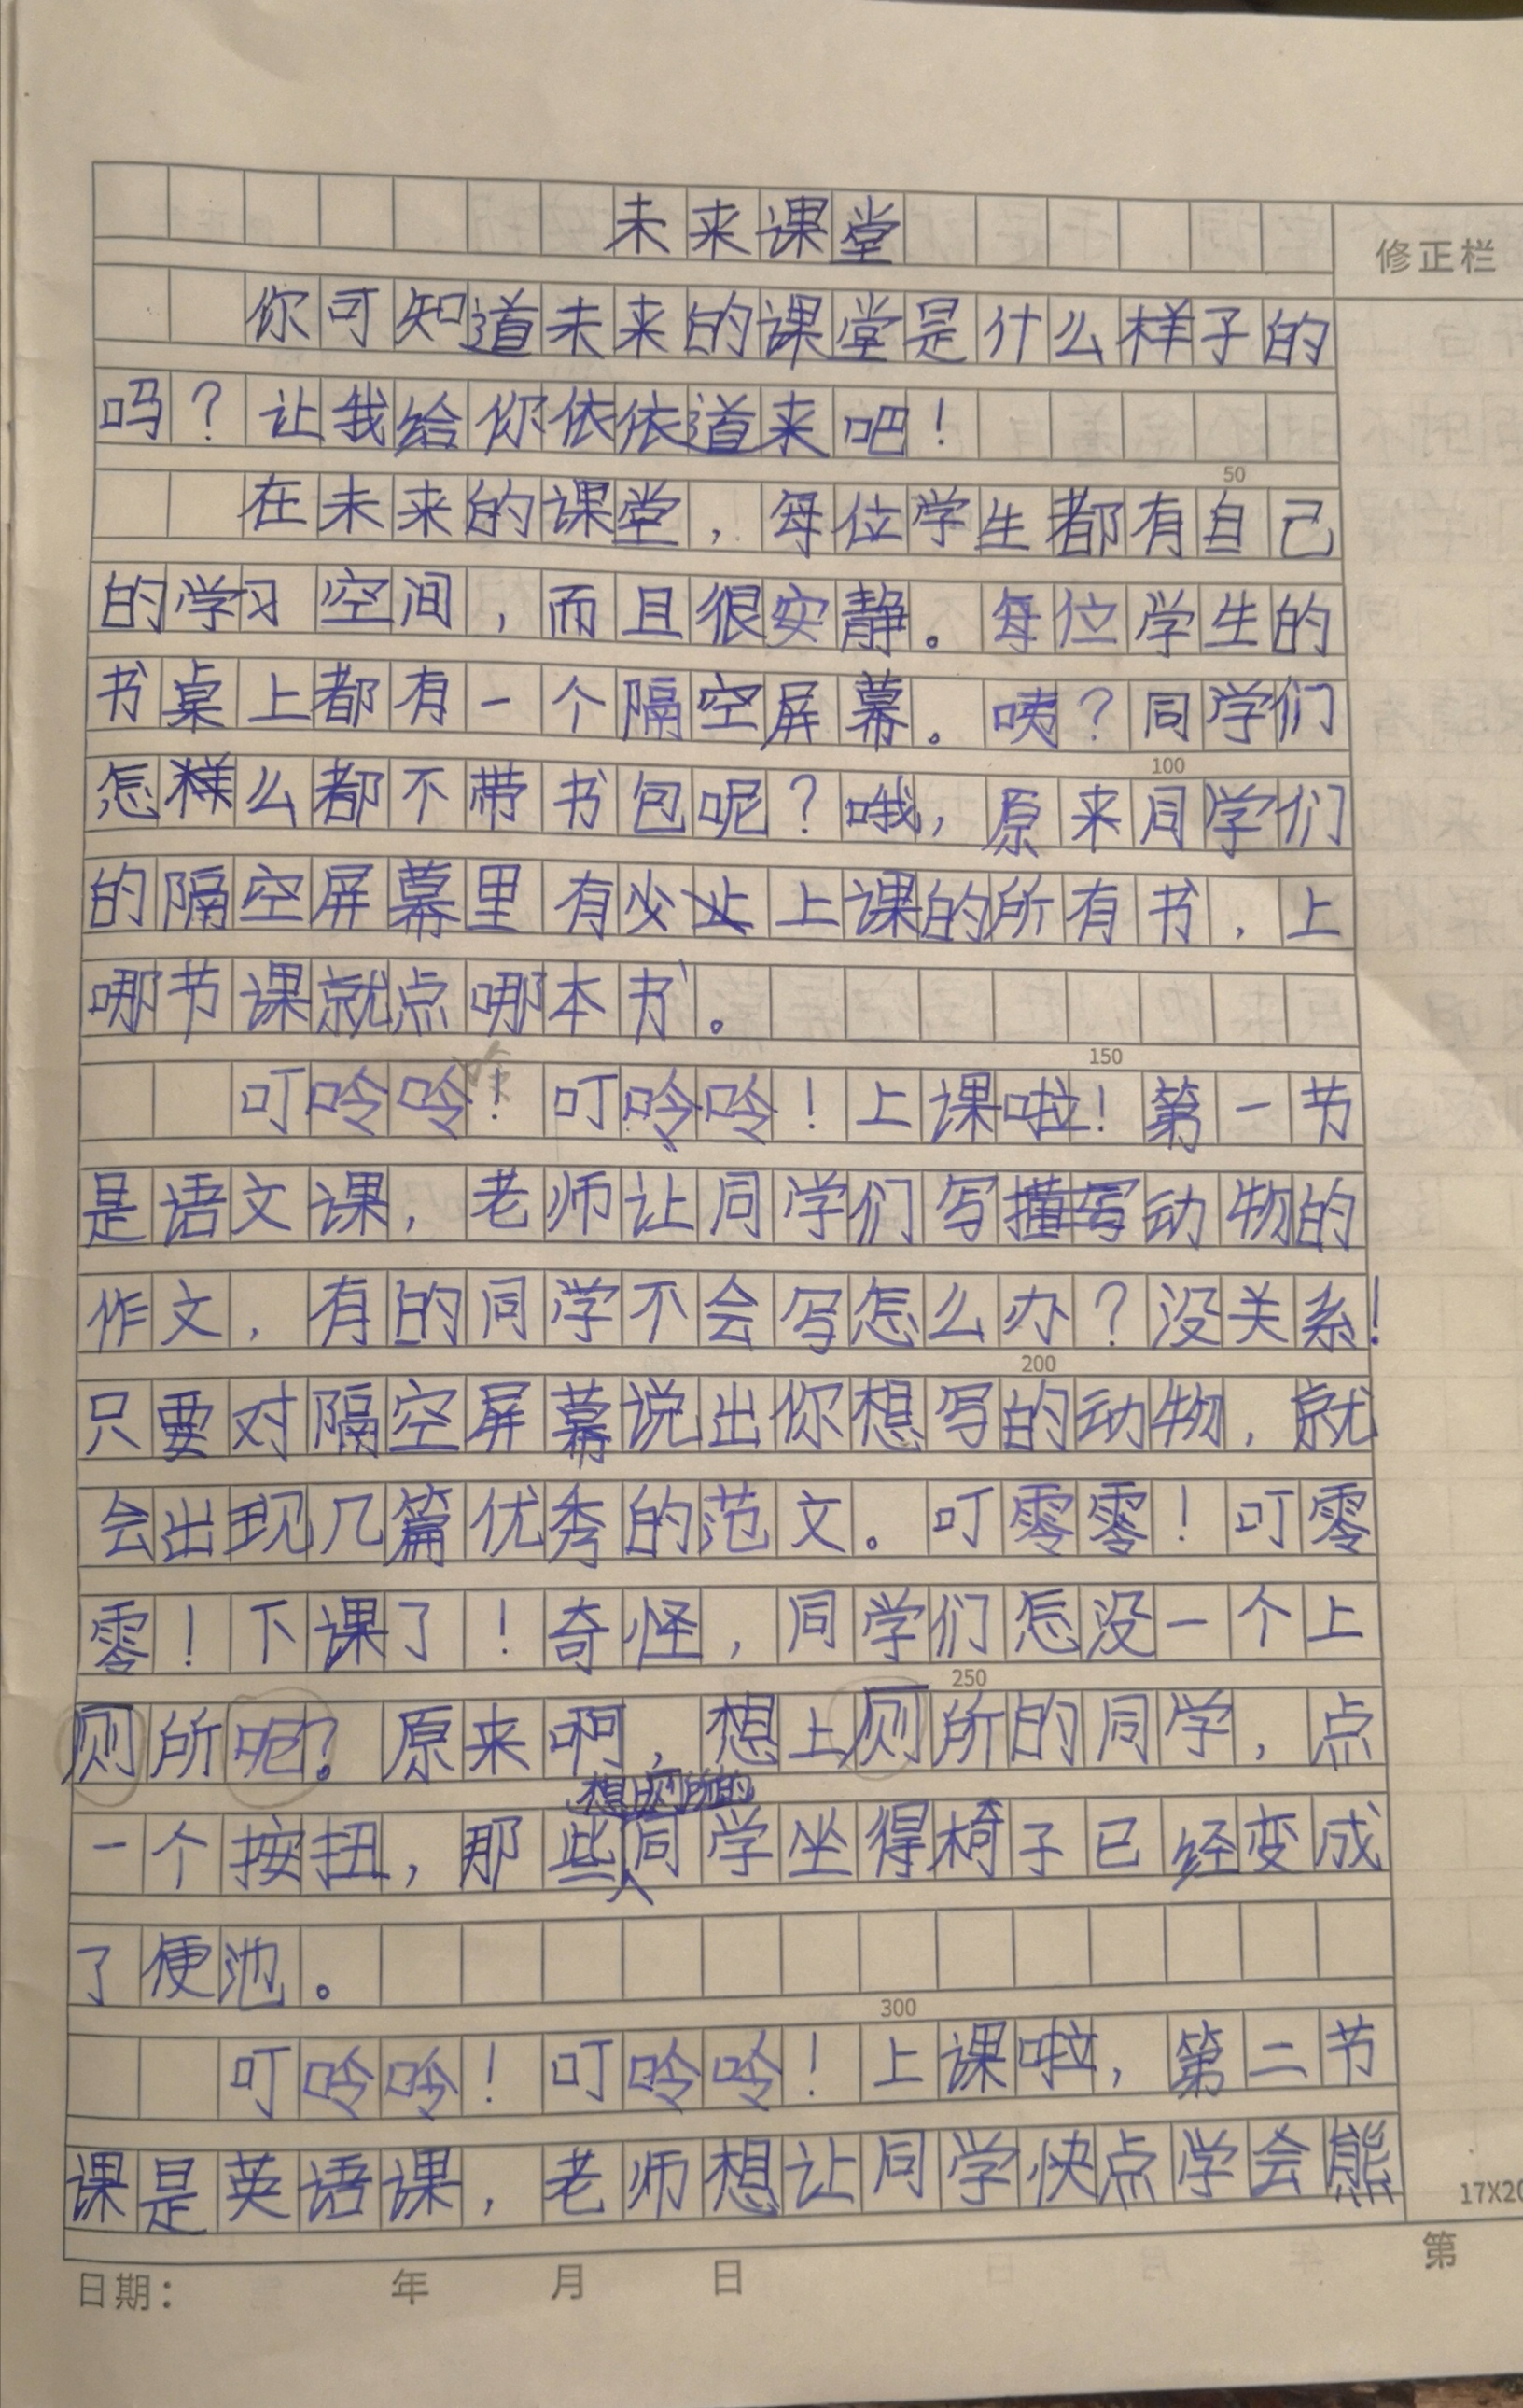 未来课堂
修正栏
你可知道未来的课堂是什么样子的
吗？让我给你依依道来吧！
50
在未来的课堂，每位学生都有自己
的学习空间，而且很安静。每位学生的
书桌上都有一个隔空屏幕。咦？同学们
100
怎么都不带书包呢？哦，原来同学们
的隔空屏幕里有上课的所有书，上
哪节课就点哪本书。
150
叮呤呤！叮呤呤！上课啦！第一节
是语文课，老师让同学们写描写动物的
作文，有的同学不会写怎么办？没关系！
200
只要对隔空屏幕说出你想写的动物，就
会出现几篇优秀的范文。叮零零！叮零
零！下课了！奇怪，同学们怎没一个上
250
厕所呢？原来啊，想上厕所的同学，点
想上厕所的
一个按扭，那些同学坐得椅子已经变成
了便池。
300
叮呤呤！叮呤呤！上课啦，第二节
课是英语课，老师想让同学快点学会熊
17X20
日期： 年 月 日 第